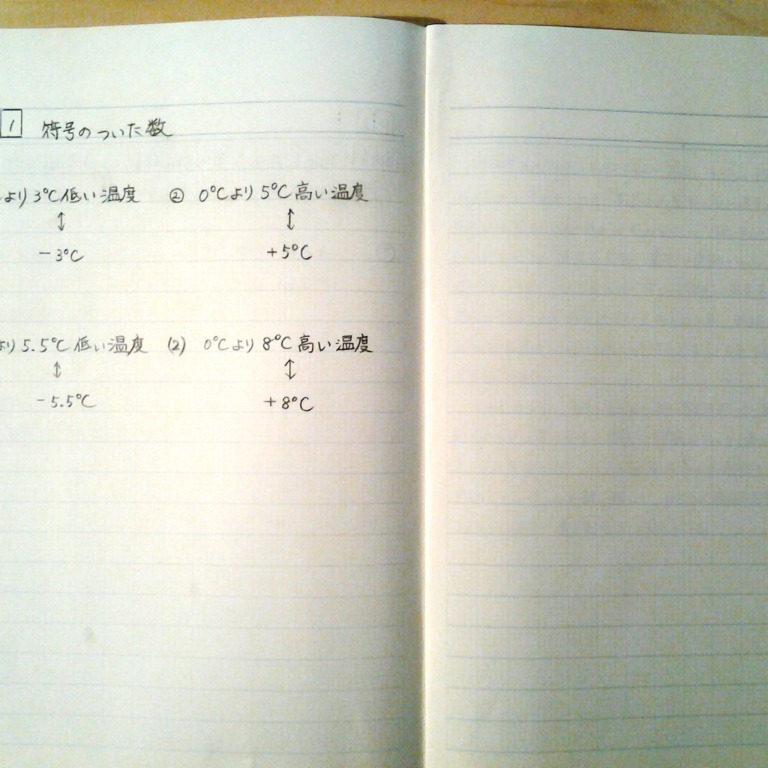 1 符号のついた数
より3℃低い温度 ② 0℃より5℃高い温度
↕ ↕
-3℃ +5℃
より5.5℃低い温度 (2) 0℃より8℃高い温度
↕ ↕
-5.5℃ +8℃